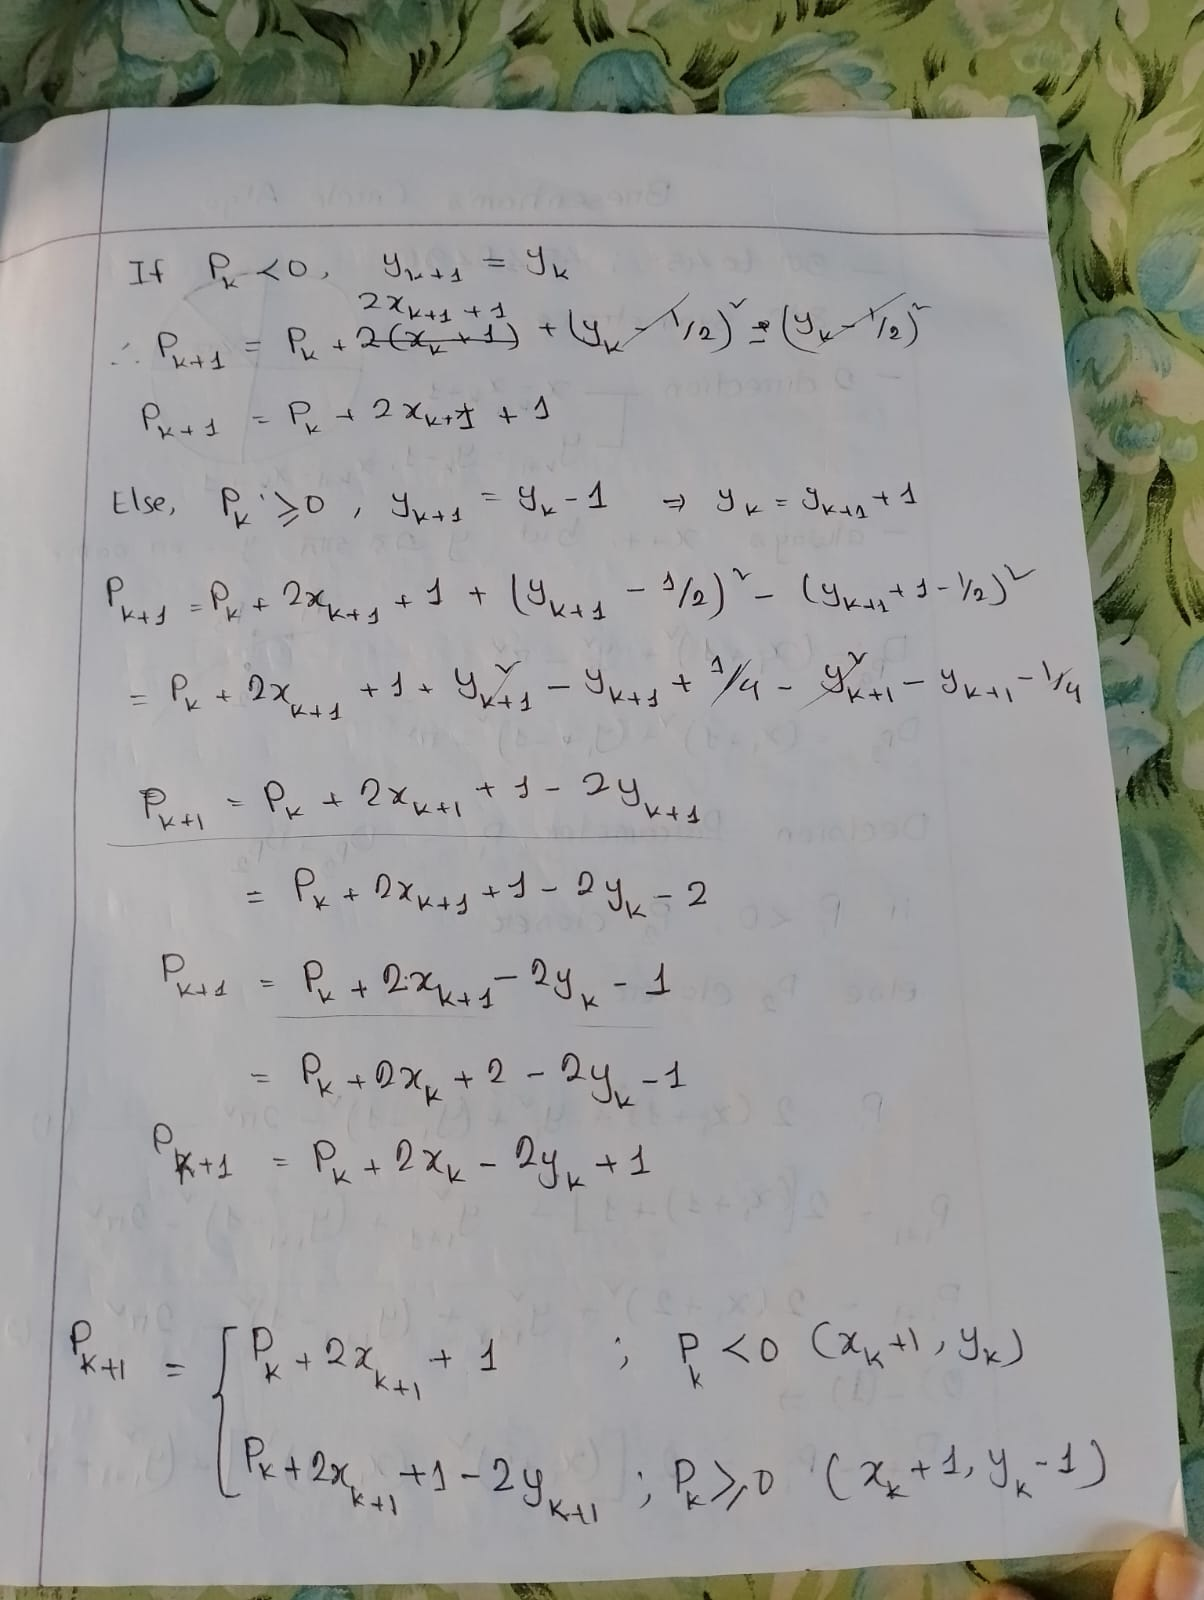 If P_k < 0, y_{k+1} = y_k
2x_{k+1} + 1
∴ P_{k+1} = P_k + ~~2(x_k + 1)~~ + (y_k - 1/2)² - (y_k - 1/2)²
P_{k+1} = P_k + 2x_{k+1} + 1
Else, P_k ≥ 0, y_{k+1} = y_k - 1 ⇒ y_k = y_{k+1} + 1
P_{k+1} = P_k + 2x_{k+1} + 1 + (y_{k+1} - 1/2)² - (y_{k+1} + 1 - 1/2)²
= P_k + 2x_{k+1} + 1 + y²_{k+1} - y_{k+1} + 1/4 - y²_{k+1} - y_{k+1} - 1/4
P_{k+1} = P_k + 2x_{k+1} + 1 - 2y_{k+1}
= P_k + 2x_{k+1} + 1 - 2y_k - 2
P_{k+1} = P_k + 2x_{k+1} - 2y_k - 1
= P_k + 2x_k + 2 - 2y_k - 1
P_{k+1} = P_k + 2x_k - 2y_k + 1
P_{k+1} = { P_k + 2x_{k+1} + 1 ; P_k < 0 (x_k + 1, y_k)
P_k + 2x_{k+1} + 1 - 2y_{k+1} ; P_k ≥ 0 (x_k + 1, y_k - 1)